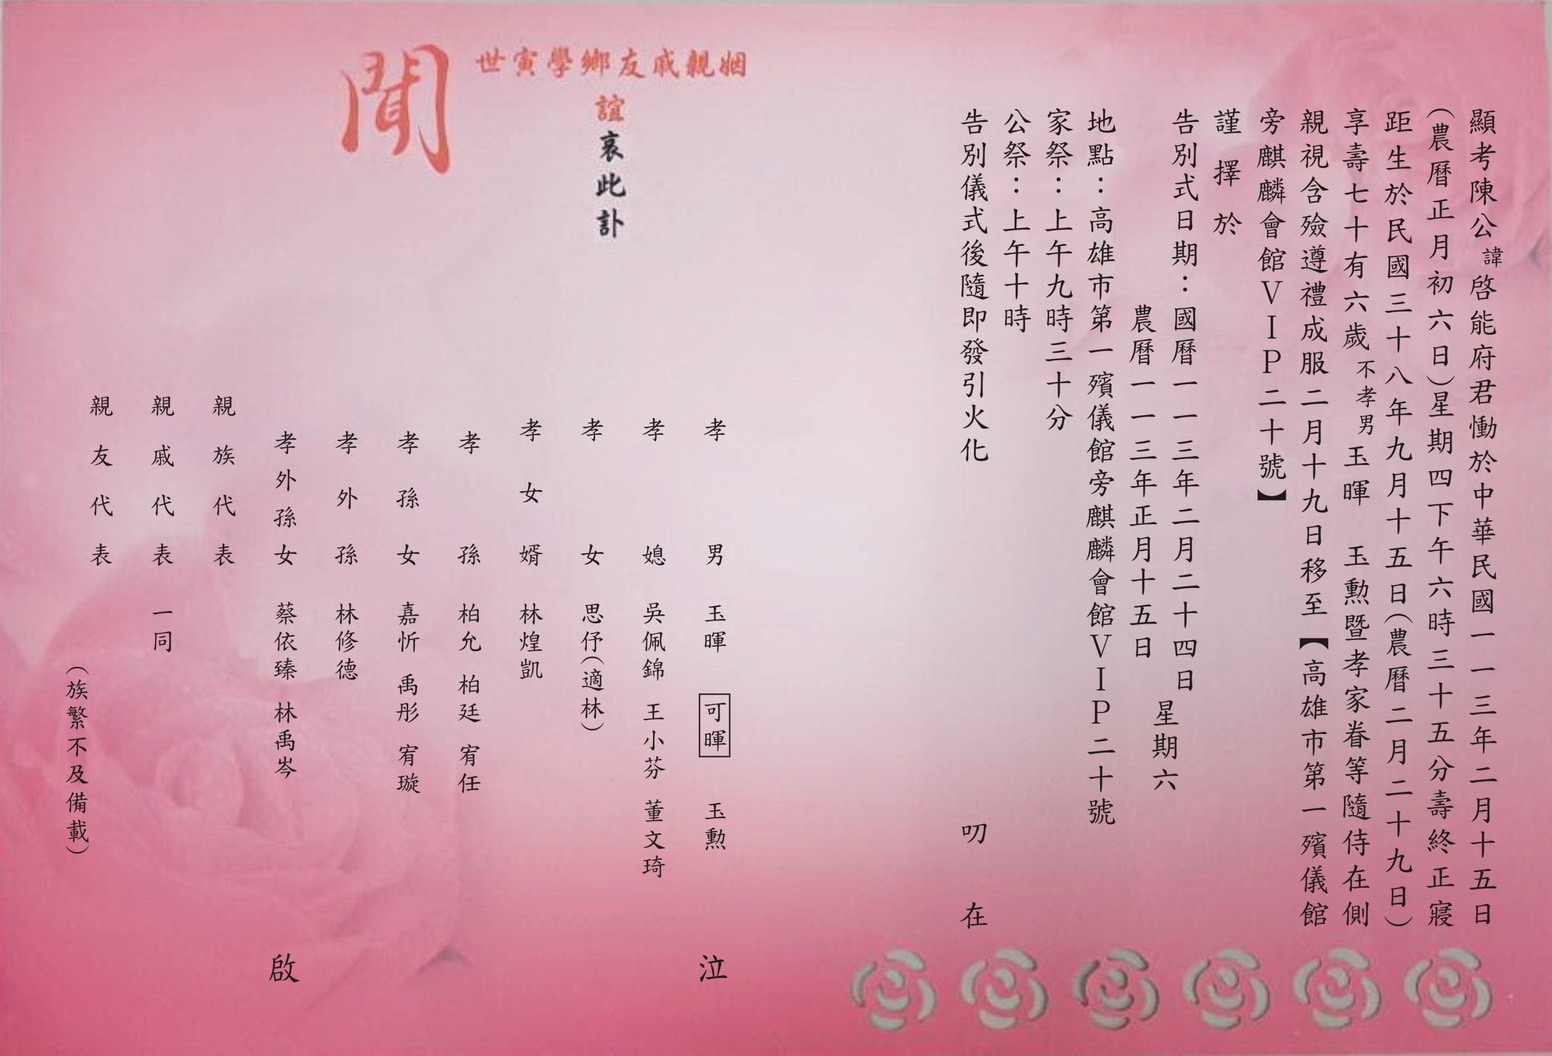 顯考陳公諱啓能府君慟於中華民國一一三年二月十五日
(農曆正月初六日)星期四下午六時三十五分壽終正寢
距生於民國三十八年九月十五日(農曆二月二十九日)
享壽七十有六歲不孝男玉暉　玉勳暨孝家眷等隨侍在側
親視含殮遵禮成服二月十九日移至【高雄市第一殯儀館
旁麒麟會館VIP二十號】
謹擇於
告別式日期：國曆一一三年二月二十四日
農曆一一三年正月十五日
星期六
地點：高雄市第一殯儀館旁麒麟會館VIP二十號
家祭：上午九時三十分
公祭：上午十時
告別儀式後隨即發引火化
叨在
姻親戚友鄉學寅世
誼哀此訃
聞
孝男　玉暉　可暉　玉勳
孝媳　吳佩錦　王小芬　董文琦
孝女　思伃(適林)
孝女婿　林煌凱
孝孫　柏允　柏廷　宥任
孝孫女　嘉忻　禹彤　宥璇
孝外孫　林修德
孝外孫女　蔡依臻　林禹岑
泣
啟
親族代表
親戚代表　一同
親友代表
(族繁不及備載)